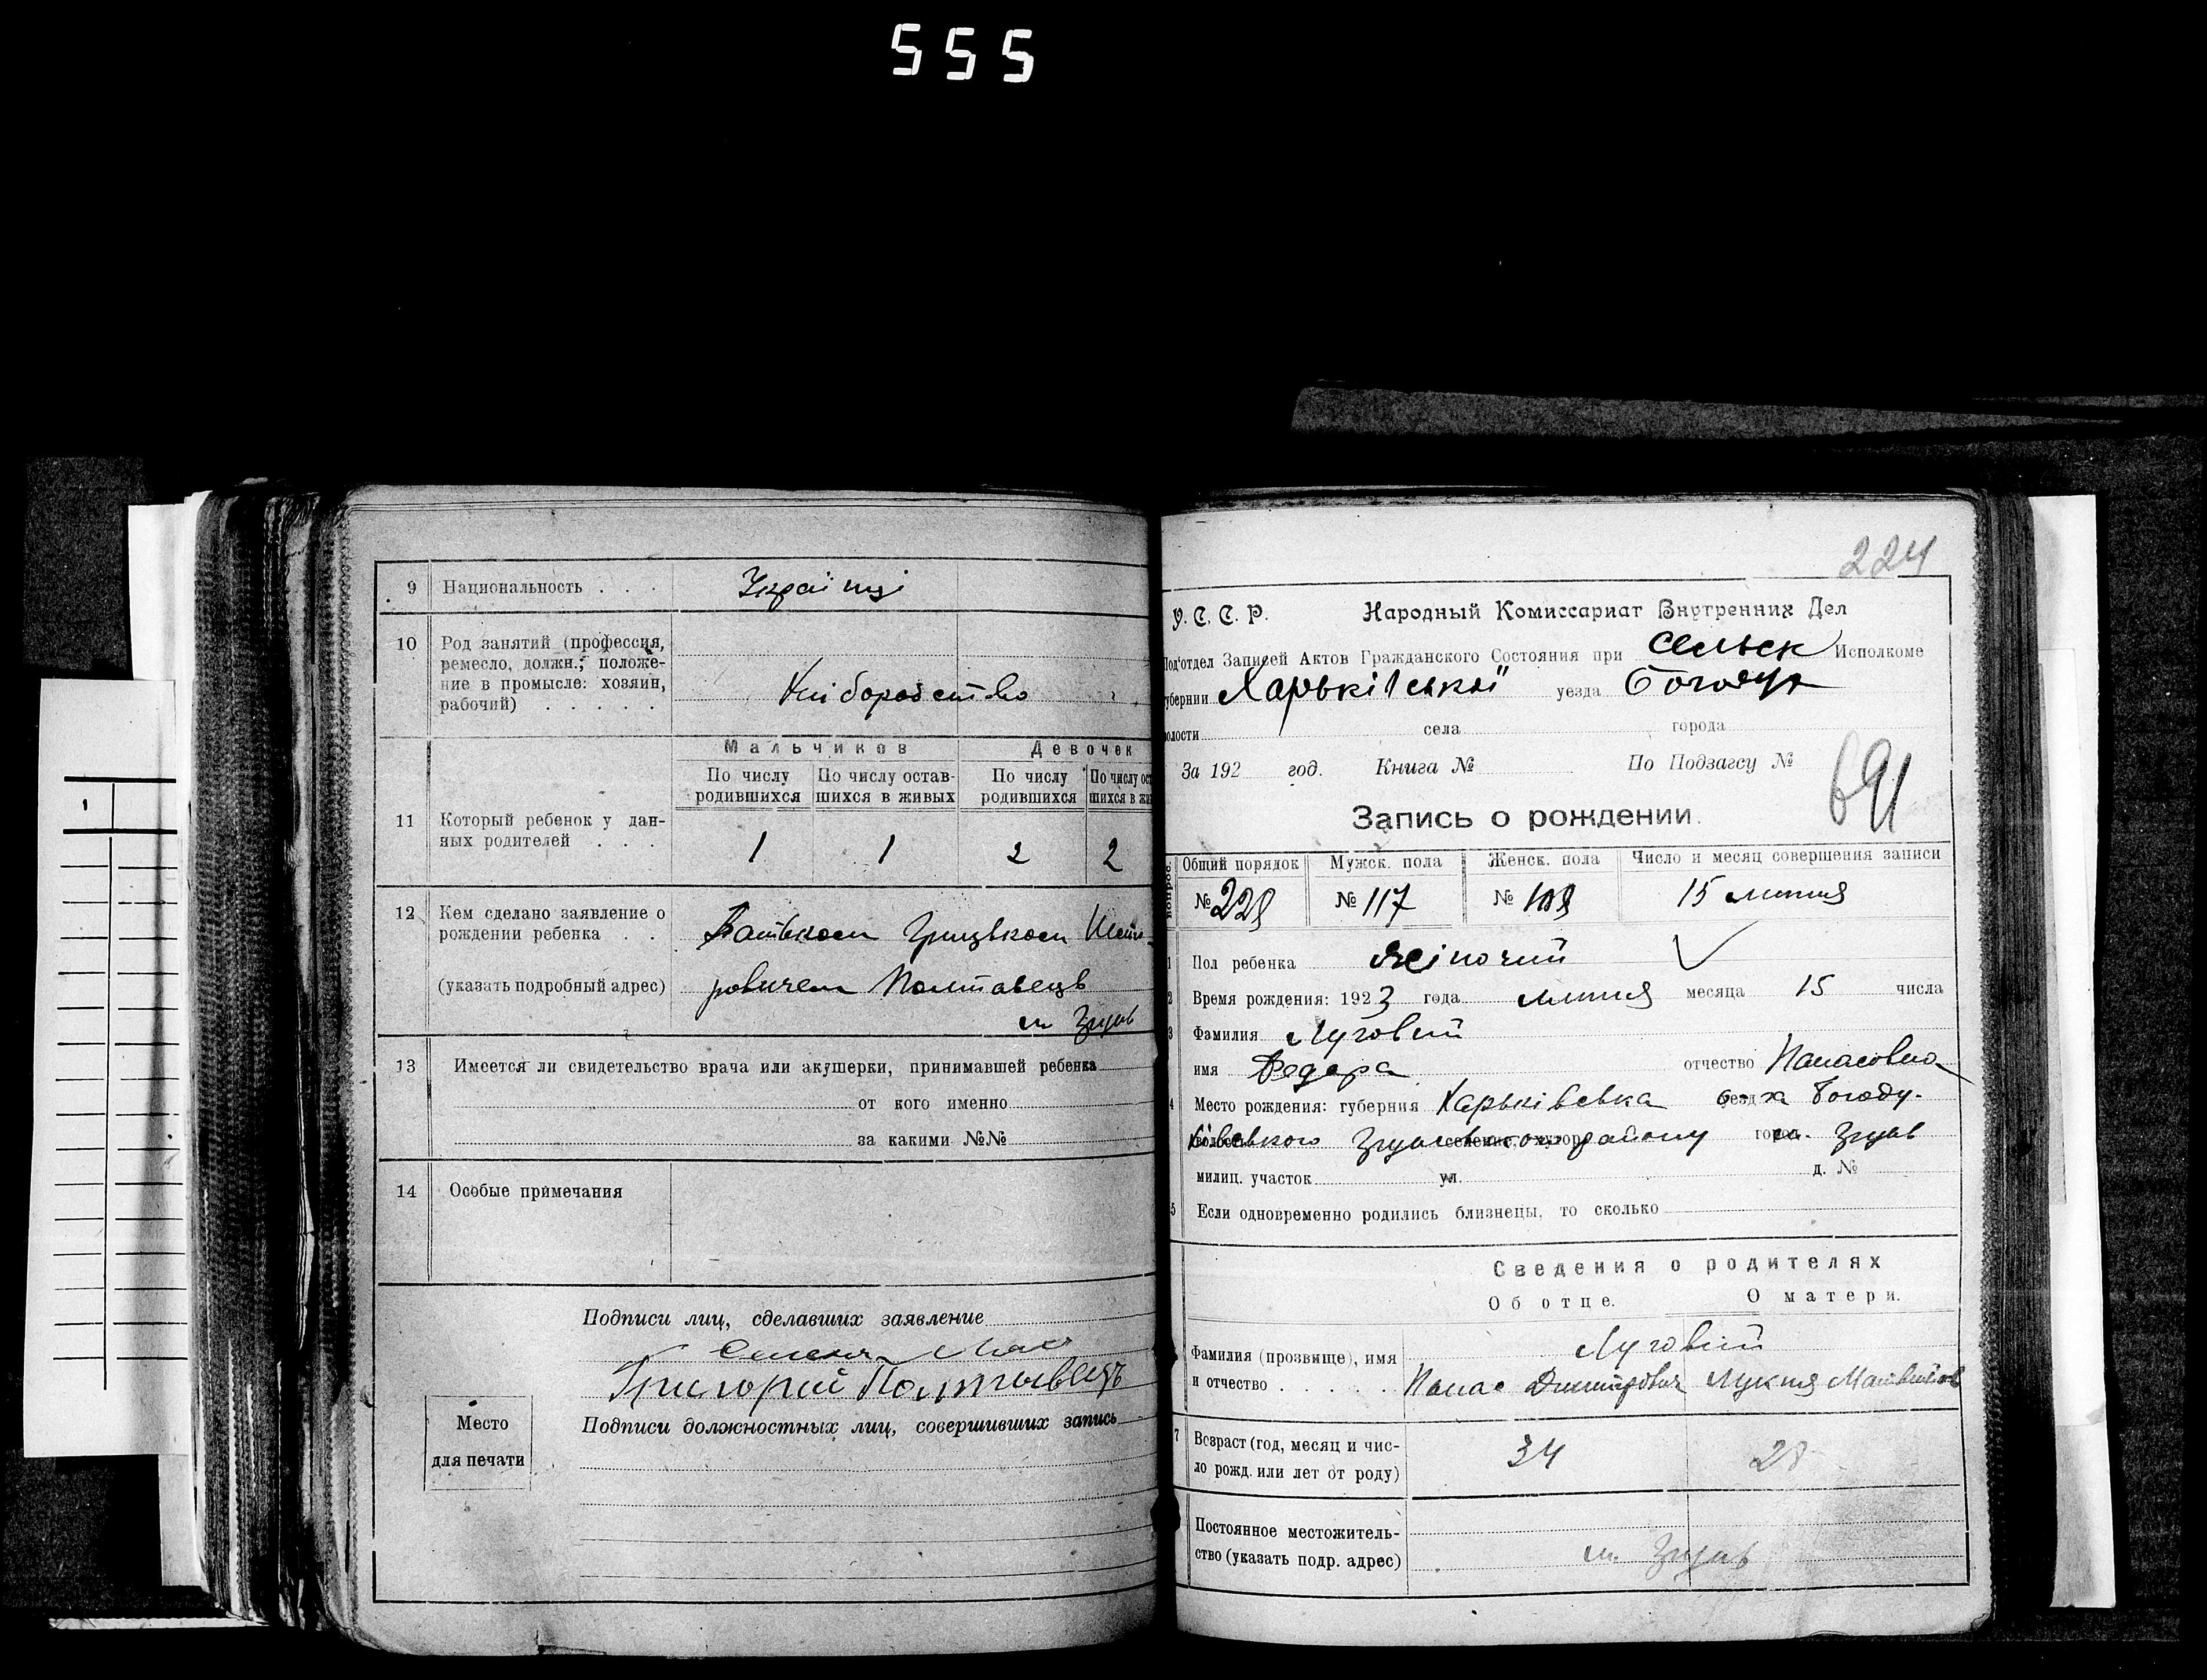 555
9 Национальность . . . Українці
10 Род занятий (профессия,
ремесло, должн.; положе-
ние в промысле: хозяин,
рабочий) . . . . . Хліборобство
Мальчиков Девочек
По числу родившихся По числу остав-шихся в живых По числу родившихся По числу ос
шихся в жи
11 Который ребенок у дан-
ных родителей . . . 1 1 2 2
12 Кем сделано заявление о
рождении ребенка . . Батьком Грицьком
(указать подробный адрес) ровичем Полтавець
м Згуів
13 Имеется ли свидетельство врача или акушерки, принимавшей ребенка
от кого именно
за какими №№
14 Особые примечания
Подписи лиц, сделавших заявление
Григорий Полтавець
Подписи должностных лиц, совершивших запись
Место
для печати
224
У. С. С. Р. Народный Комиссариат Внутренних Дел
Под'отдел Записей Актов Гражданского Состояния при Сельск Исполкоме
губернии Харьківськой уезда Богодух
волости села города
За 192 год. Книга № По Подзагсу №
691
Запись о рождении.
Общий порядок Мужск. пола Женск. пола Число и месяц совершения записи
№ 228 № 117 № 15 липня
1 Пол ребенка жіночий
2 Время рождения: 1923 года липня месяца 15 числа
3 Фамилия Луговій
имя Федора отчество Панасовна
4 Место рождения: губерния Харьківська уезд Богоду-
хівського району м. Згуів
милиц. участок ул. д. №
5 Если одновременно родились близнецы, то сколько
Сведения о родителях
Об отце. О матери.
Фамилия (прозвище), имя Луговій
и отчество . . . . . Панас Димитрович Лукия Матвиівна
7 Возраст (год, месяц и чис-
ло рожд. или лет от роду) 34 28
Постоянное местожитель-
ство (указать подр. адрес) м. Згуів